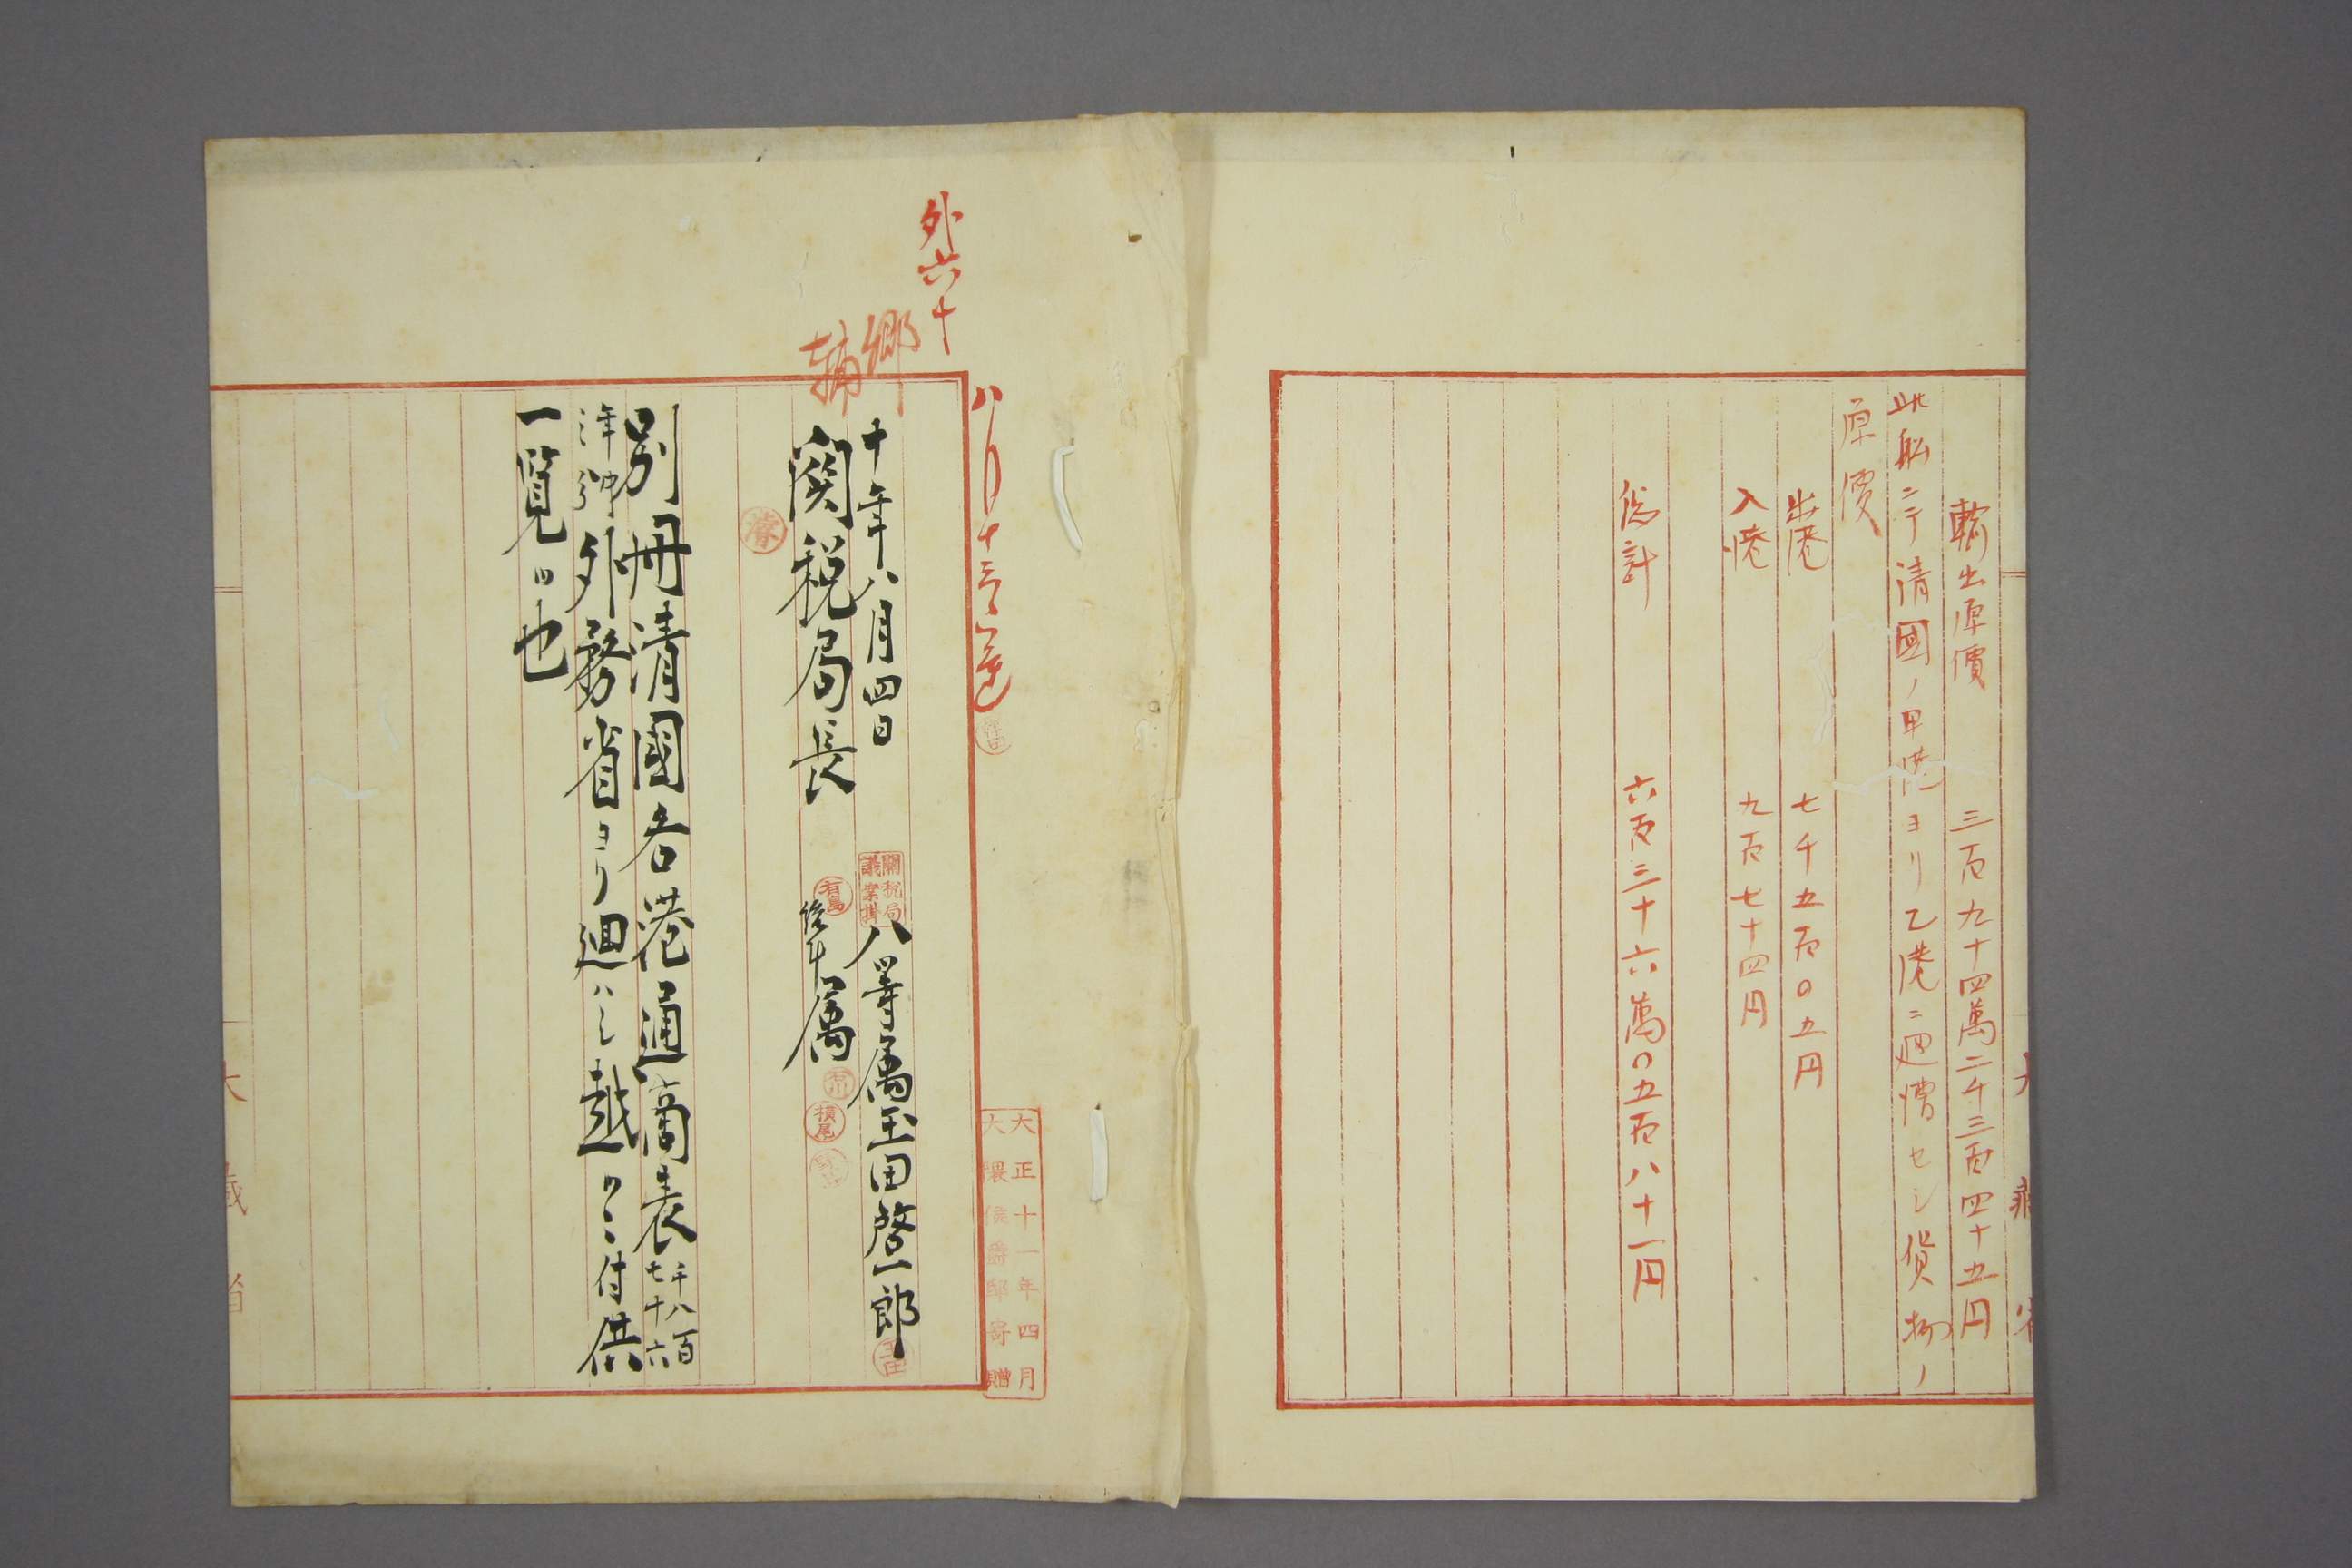 輸出原價　三百九十四萬二千三百四十五円
此船ニテ清國ノ甲港ヨリ乙港ニ廻漕セシ貨物ノ
原價
出港　七千五百〇五円
入港　九百七十四円
総計　六百三十六萬〇五百八十一円
大藏省
外六十
卿
輔
大正十一年四月
大隈侯爵邸寄贈
十年八月四日
關税局議案掛
八等属玉田啓一郎
玉田
関税局長
有島
属
横尾
別冊清國各港通商表千八百七十六
年中之分外務省ヨリ廻ハシ越候ニ付供
一覧候也
大藏省